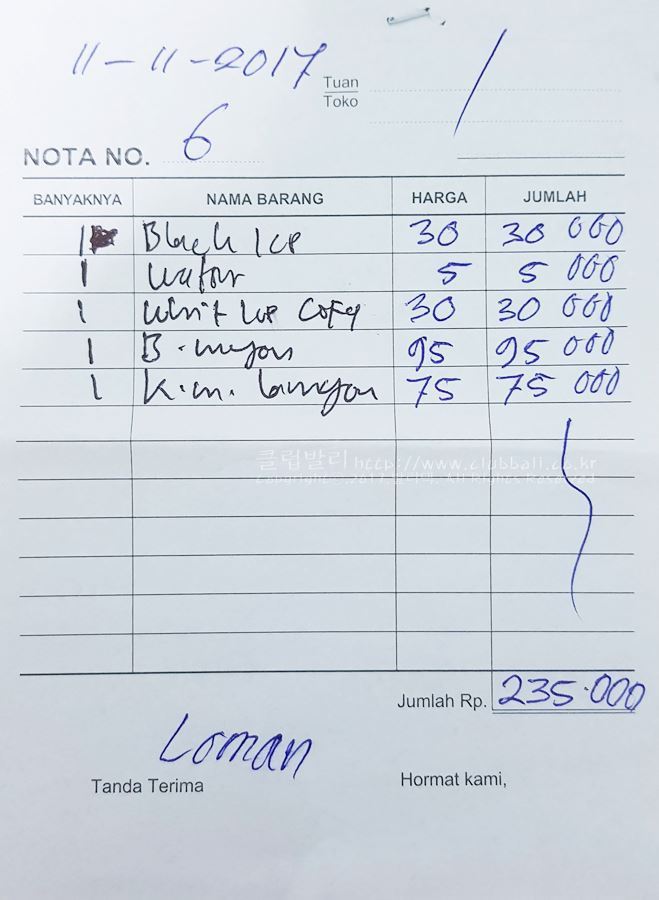 11-11-2017
Tuan
Toko
NOTA NO. 6
BANYAKNYA NAMA BARANG HARGA JUMLAH
1 Black Ice 30 30 000
1 Water 5 5 000
1 Whit Ice Coffy 30 30 000
1 B. myon 95 95 000
1 K.m. lamyon 75 75 000
클럽발리 http://www.clubbali.co.kr
All Rights Reserved
Jumlah Rp. 235.000
Loman
Tanda Terima Hormat kami,